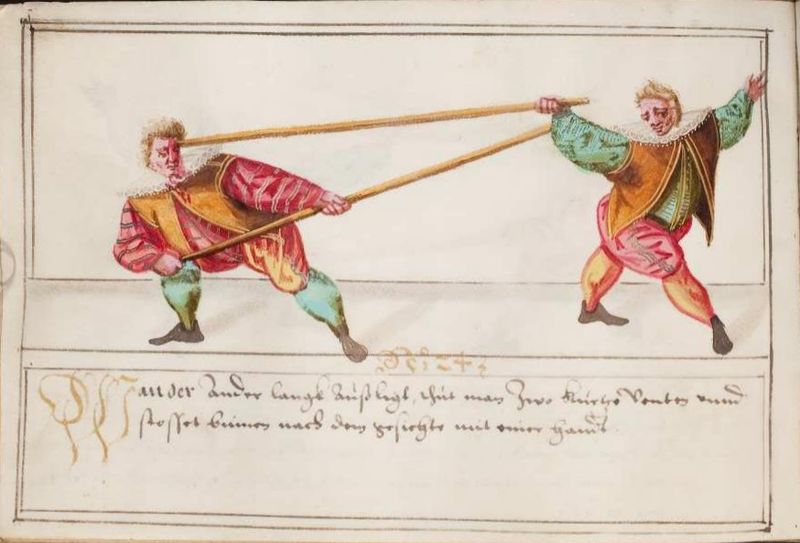 Wan der Ander langk Außligt, thut man Zwo kurtze Venten vnnd
stosset binnen nach dem gesichte mit einer Handt.